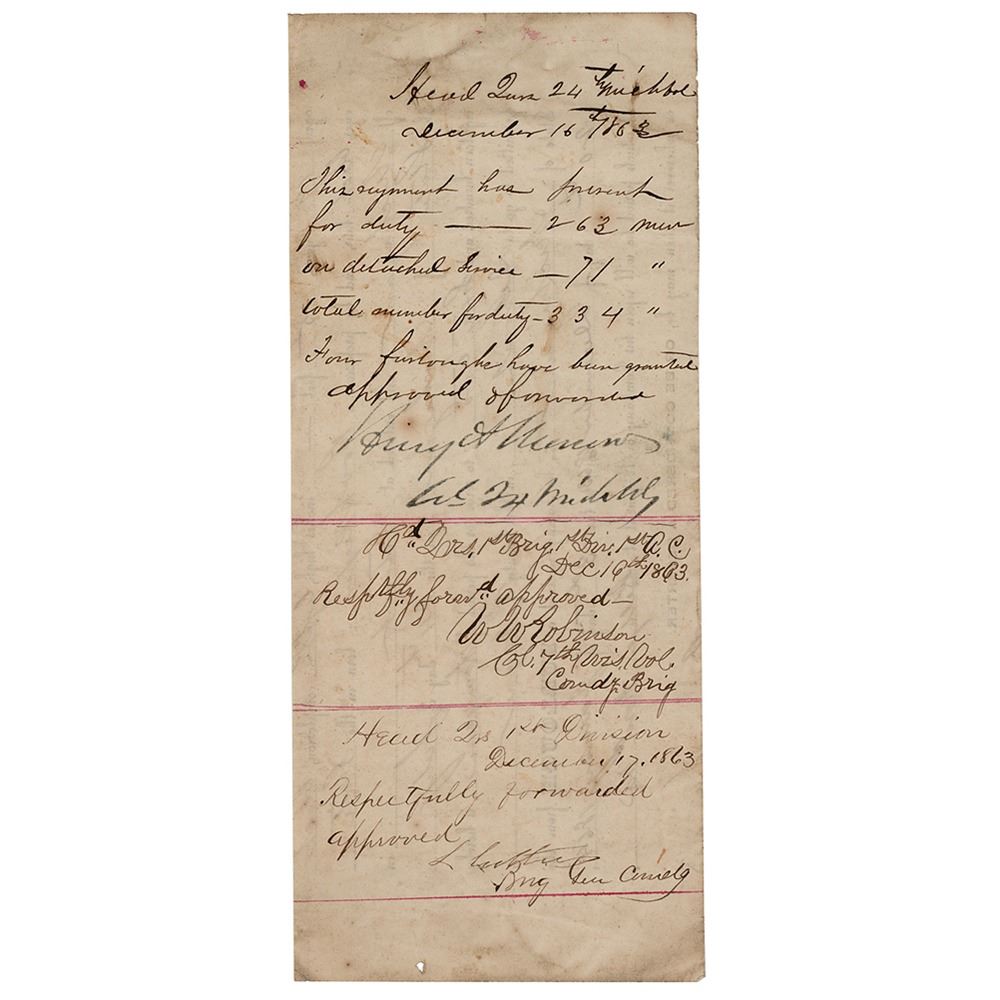 Head Qurs 24th Mich Vol
December 16th 1863
This regiment has present
for duty — 263 men
on detached service — 71 "
total number for duty - 334 "
Four furloughs have been granted
approved & forwarded
Henry A Morrow
Col 24 Mich Vly
Hd Qrs. 1st Brig. 1st Div. 1st A. C.
Dec 16th 1863.
Respctfly forwd approved —
W W Robinson
Col. 7th Wis. Vol.
Comdg Brig
Head Qrs 1st Division
December 17, 1863
Respectfully forwarded
approved
L Cutler
Brig Gen Comdg